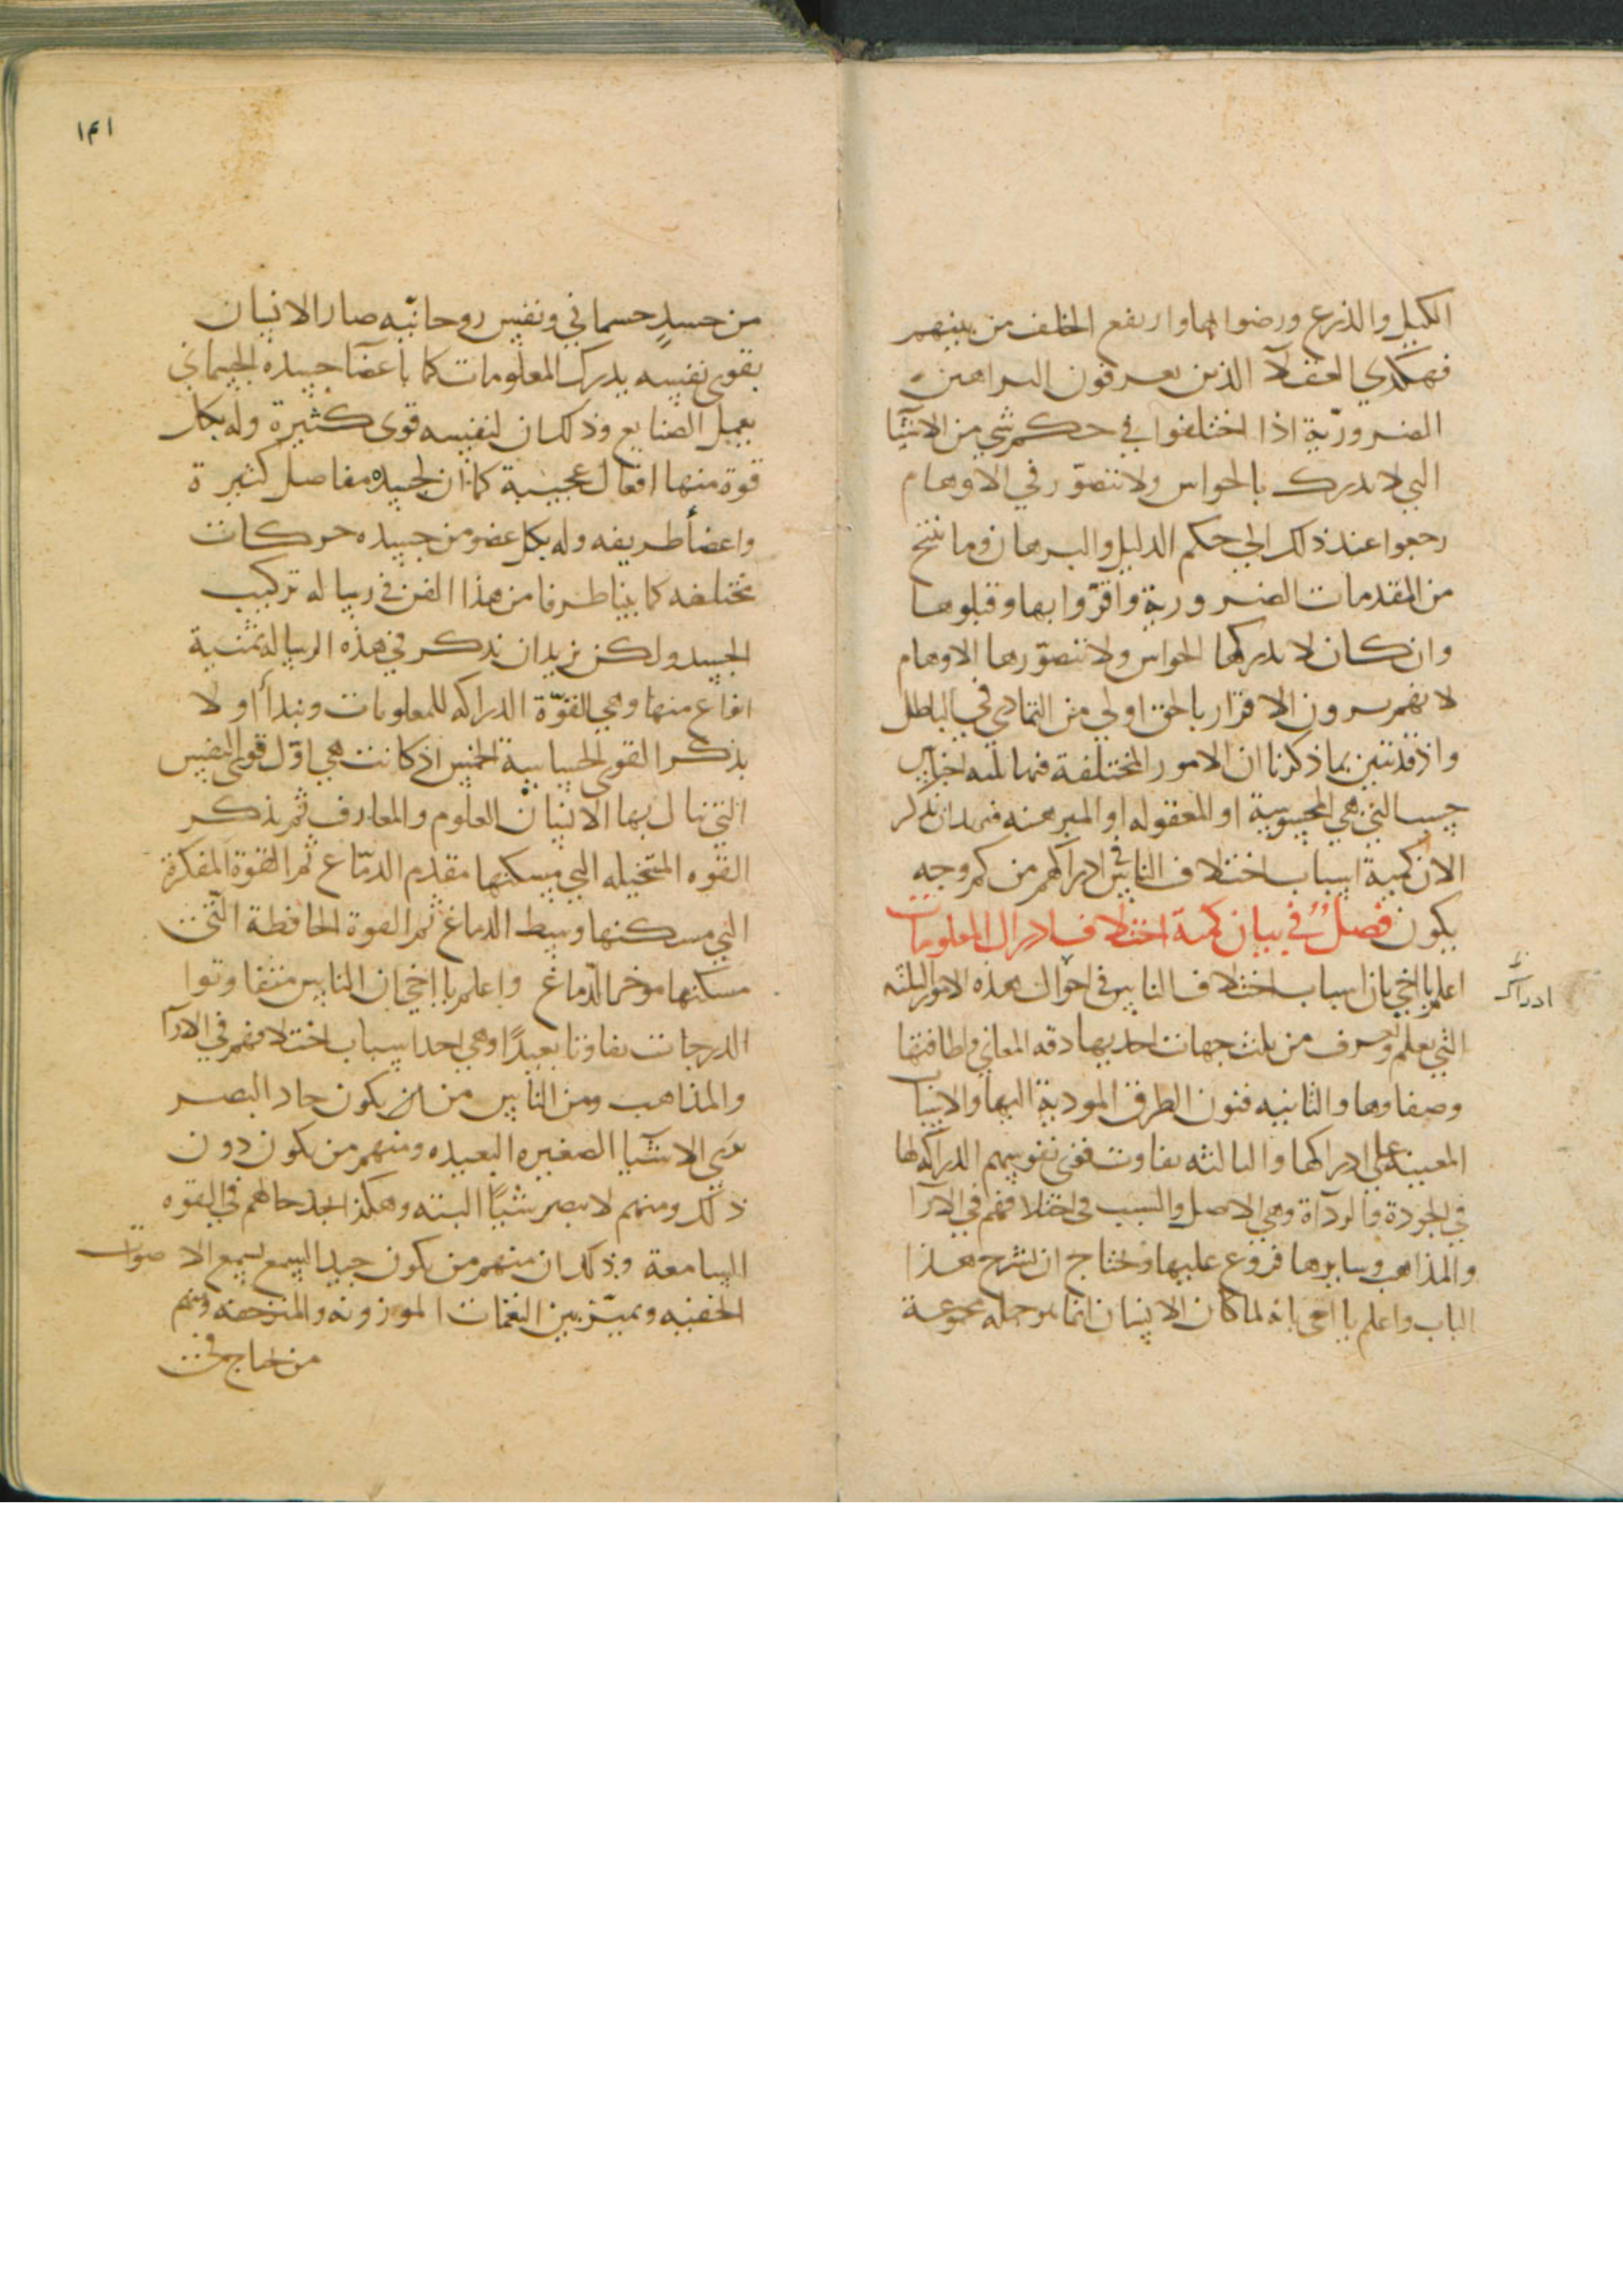 الكيل والذرع ورضوا بها وارتفع الخلف من بينهم
فهكذي العقلآ الذين يعرفون البراهين
الضرورية اذا اختلفوا في حكم شي من الاشيآ
التي لا تدرك بالحواس ولا تتصور في الاوهام
رجعوا عند ذلك الي حكم الدليل والبرهان وما ينتج
من المقدمات الضرورية واقرّوا بها وقبلوها
وان كان لا تدركها الحواس ولا تتصوّرها الاوهام
لانهم يرون الاقرار بالحق اولي من التمادي في الباطل
واذ قد تبين بما ذكرنا ان الامور المختلفة فيها ثلثه اجناس
حسب التي هي المحسوسة او المعقوله او المبرهنه فنريد ان نذكر
الان كمية اسباب اختلاف الناس في ادراكهم من كم وجه
يكون فصل في بيان كمية اختلاف ادراك المعلومات
اعلم يا اخي بان اسباب اختلاف الناس في احوال هذه الامور الثلثه
ادراك
التي تعلم وتعرف من ثلث جهات احديها دقه المعاني ولطافتها
وصفاوها والثانيه فنون الطرق المودية اليها والاسباب
المعينه علي ادراكها والثالثه تفاوت قوي نفوسهم الدراكه لها
في الجودة والردآة وهي الاصل والسبب في اختلافهم في الآرا
والمذاهب وسايرها فروع عليها ونحتاج ان نشرح هذا
الباب واعلم يا اخي بانه لما كان الانسان انما هو جمله مجموعة
١٣١
من جسدٍ جسماني ونفس روحانيّه صار الانسان
بقوي نفسه يدرك المعلومات كما باعضآ جسده الجسماني
يعمل الصنايع وذلك ان لنفسه قوي كثيرة وله بكل
قوة منها افعال عجيبة كما ان لجسده مفاصل كثيرة
واعضأ طريفه وله بكل عضو من جسده حركات
مختلفه كما بينا طرفا من هذا الفن في رساله تركيب
الجسد ولكن نريد ان نذكر في هذه الرسالة خمسة
انواع منها وهي القوّة الدراكه للمعلومات ونبدأ اولا
بذكر القوي الحساسة الخمس اذ كانت هي اوّل قوي النفس
التي تنال بها الانسان العلوم والمعارف ثم نذكر
القوه المتخيله التي مسكنها مقدم الدمّاغ ثم القوة المفكرة
التي مسكنها وسط الدماغ ثم القوة الحافظة التي
مسكنها موخر الدّماغ واعلم يا اخي ان الناس متفاوتوا
الدرجات تفاوتا بعيدًا وهي احد اسباب اختلافهم في الارآ
والمذاهب ومن الناس من يكون حاد البصر
يري الاشيآ الصغيره البعيده ومنهم من يكون دون
ذلك ومنهم لا يبصر شيًا البته وهكذا نجد حالهم في القوه
السامعة وذلك ان منهم من يكون جيد السمع يسمع الاصوات
الخفيه ويميّز بين النغمات الموزونه والمنزحفه ومنهم
من يحتاج